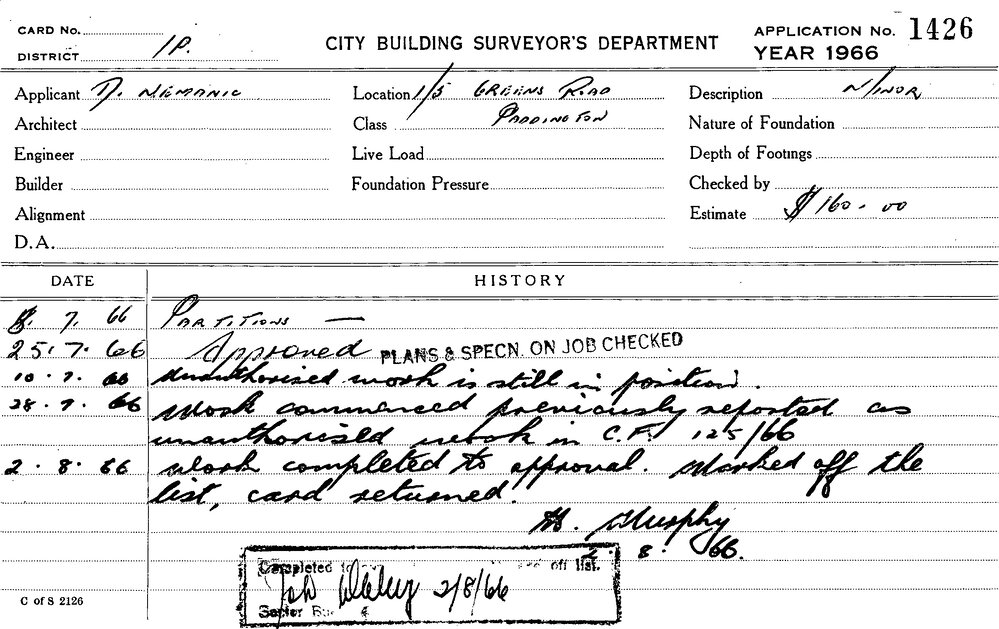 CARD No.
DISTRICT 1P.
CITY BUILDING SURVEYOR'S DEPARTMENT
APPLICATION No. 1426
YEAR 1966
Applicant D. NEMANIC
Location 1/5 GREENS ROAD
Description MINOR
Architect
Class PADDINGTON
Nature of Foundation
Engineer
Live Load
Depth of Footings
Builder
Foundation Pressure
Checked by
Alignment
Estimate $160.00
D.A.
DATE HISTORY
8. 7. 66 PARTITIONS —
25.7.66 Approved PLANS & SPECN. ON JOB CHECKED
10.7.66 Unauthorised work is still in position.
28.7.66 Work commenced previously reported as
unauthorised work in C.F. 125/66
2.8.66 Work completed to approval. Marked off the
list, card returned.
Murphy
2. 8. 66.
Completed to off list.
2/8/66
C of S 2126